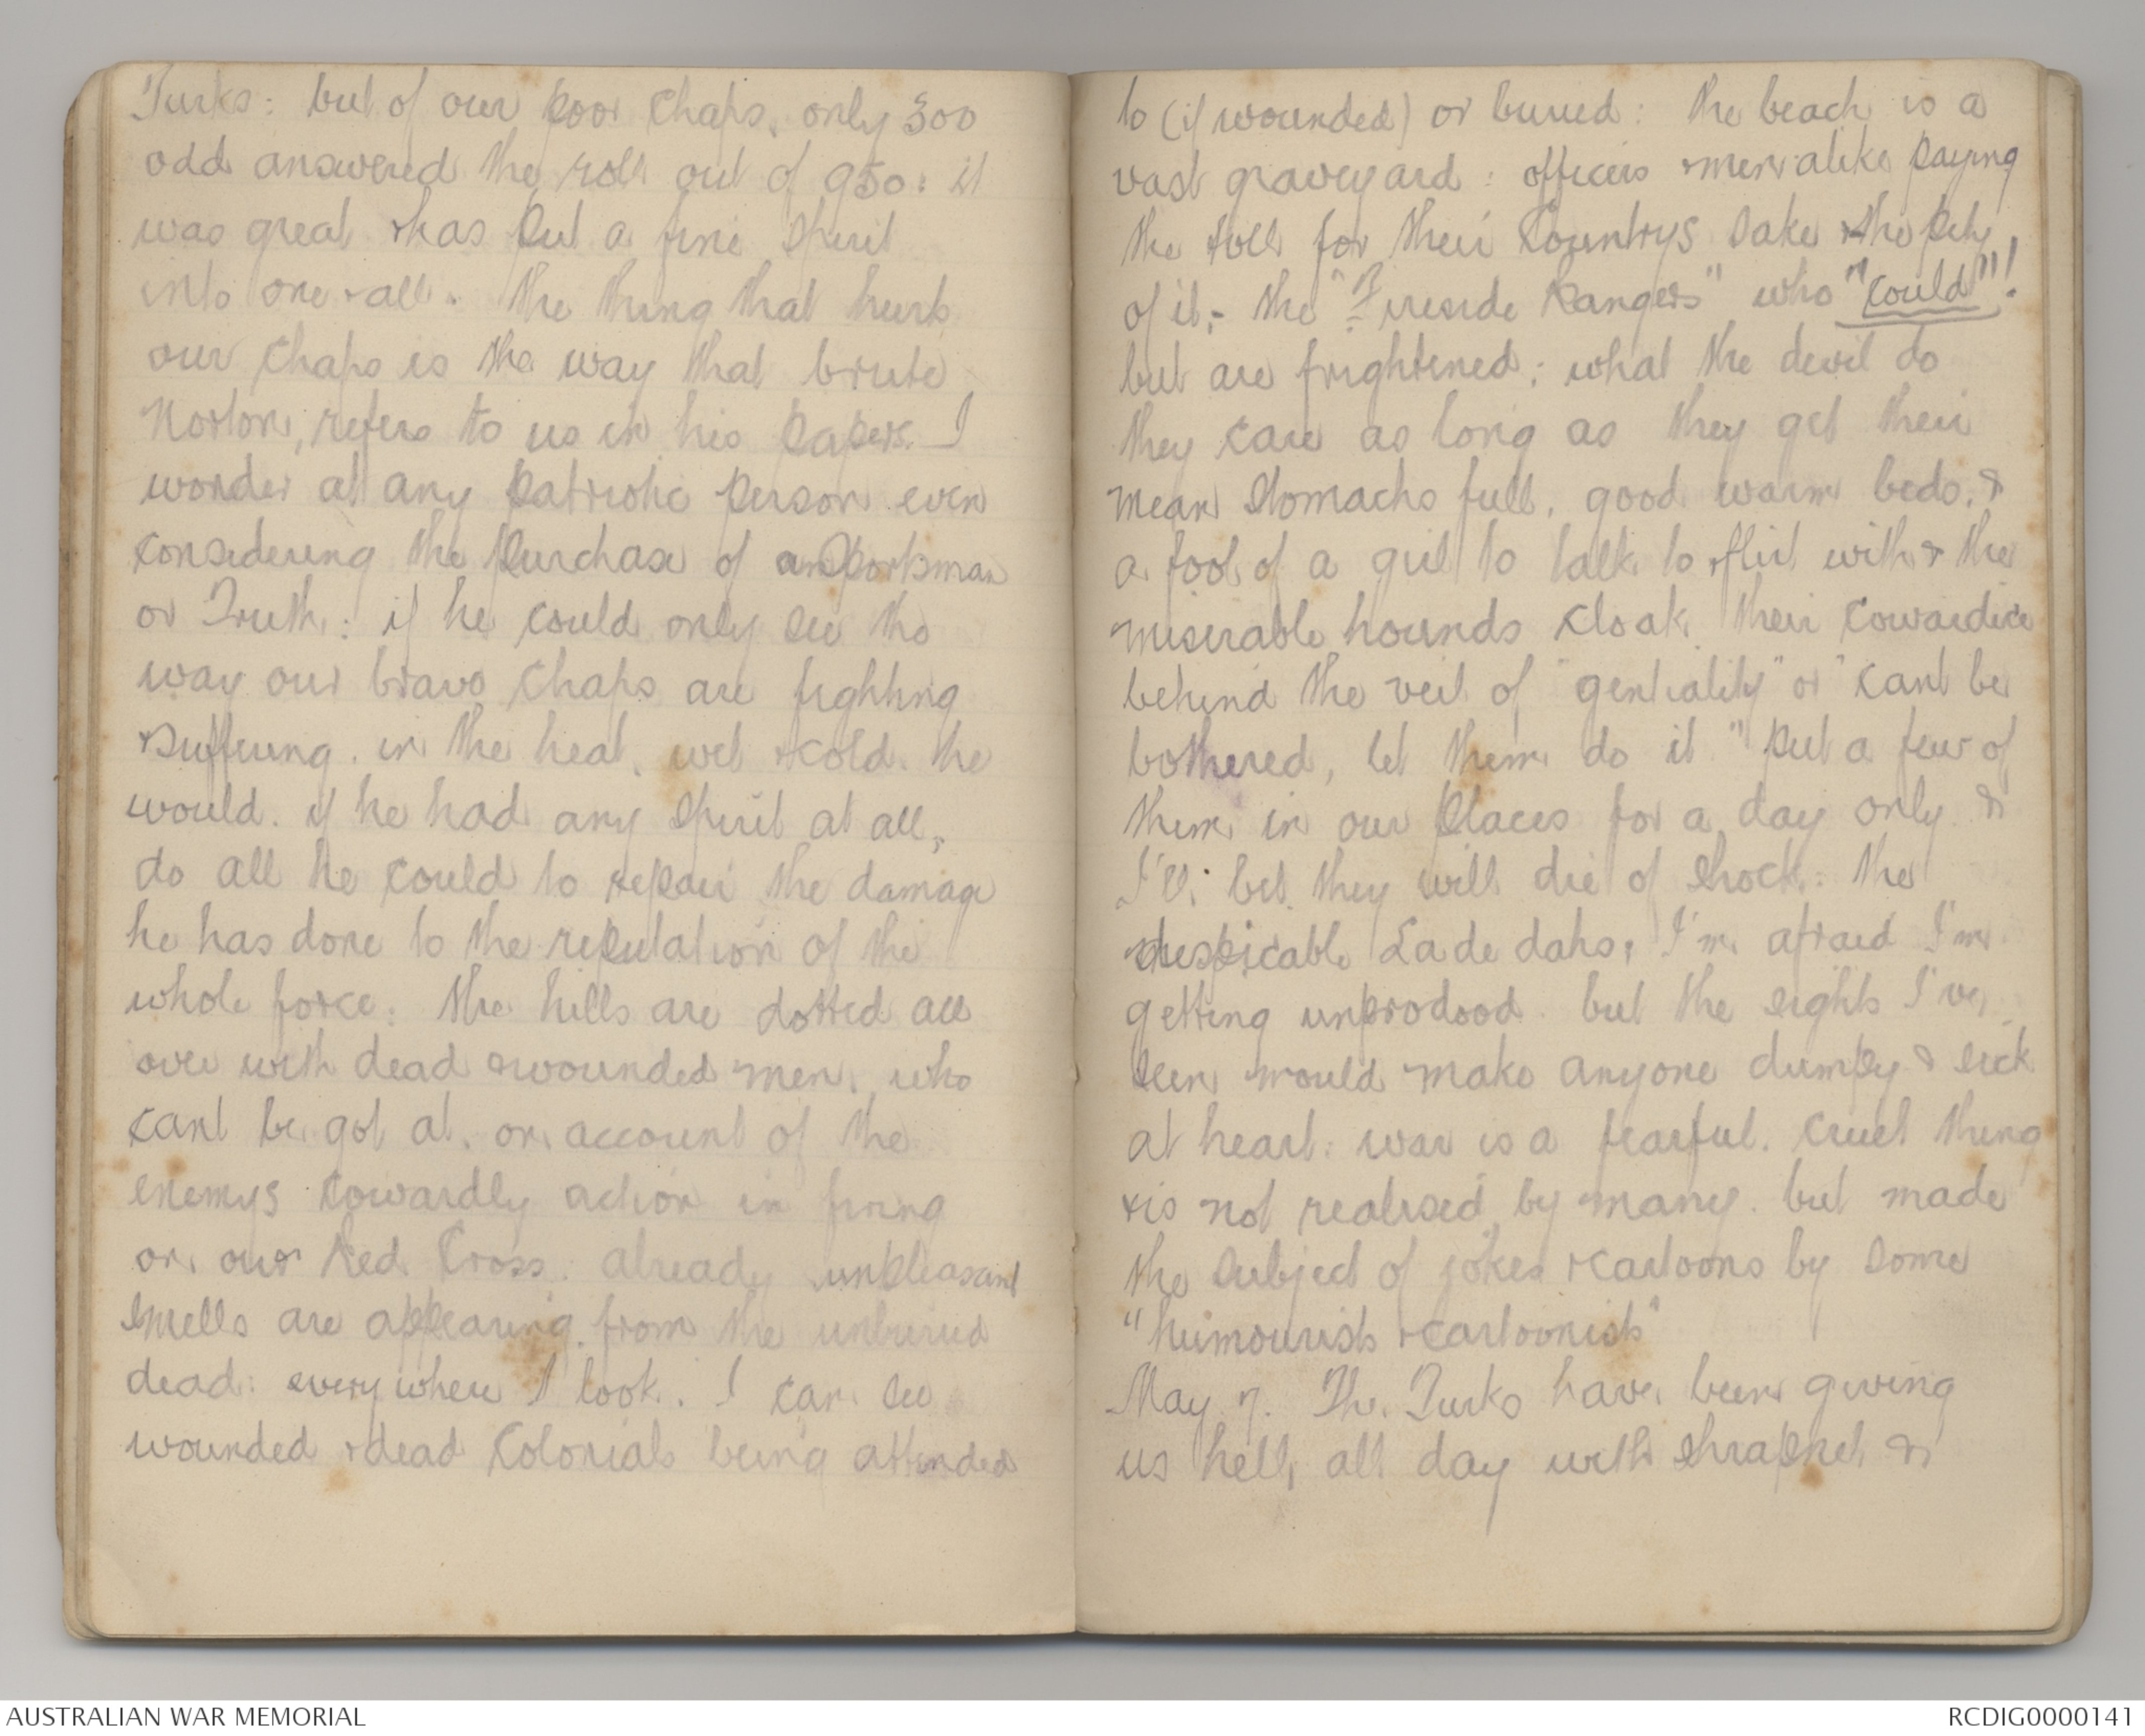 Turks: but of our poor chaps, only 300
odd answered the roll out of 950: it
was great & has put a fine spirit
into one & all. The thing that hurts
our chaps is the way that brute
Norton, refers to us in his papers. I
wonder at any patriotic person even
considering the purchase of a Sportsman
or Truth: if he could only see the
way our brave chaps are fighting
& suffering. in the heat, wet & cold. he
would. if he had any spirit at all,
do all he could to repair the damage
he has done to the reputation of the
whole force: the hills are dotted all
over with dead & wounded men, who
cant be got at. on account of the
enemys cowardly action in firing
on our Red Cross. already unpleasant
smells are appearing from the unburied
dead: everywhere I look. I can see
wounded & dead Colonials being attended
to (if wounded) or buried: the beach is a
vast graveyard: officers & men alike paying
the toll for their Countrys sake & the pity
of it,- the "Fireside Rangers" who "could"!
but are frightened; what the devil do
they care as long as they get their
mean stomachs full, good warm beds, &
a fool of a girl to talk to & flirt with & the
miserable hounds cloak their cowardice
behind the veil of "gentiality" or "cant be
bothered, let them do it" put a few of
them in our places for a day only &
I'll bet they will die of shock: the
despicable La de dahs, I'm afraid I'm
getting unprodood but the sights I've
seen would make anyone dumpy & sick
at heart: war is a fearful. cruel thing
& is not realised by many. but made
the subject of jokes & cartoons by some
"humourists & cartoonists"
May 7. The Turks have been giving
us hell, all day with shrapnel &
AUSTRALIAN WAR MEMORIAL
RCDIG0000141